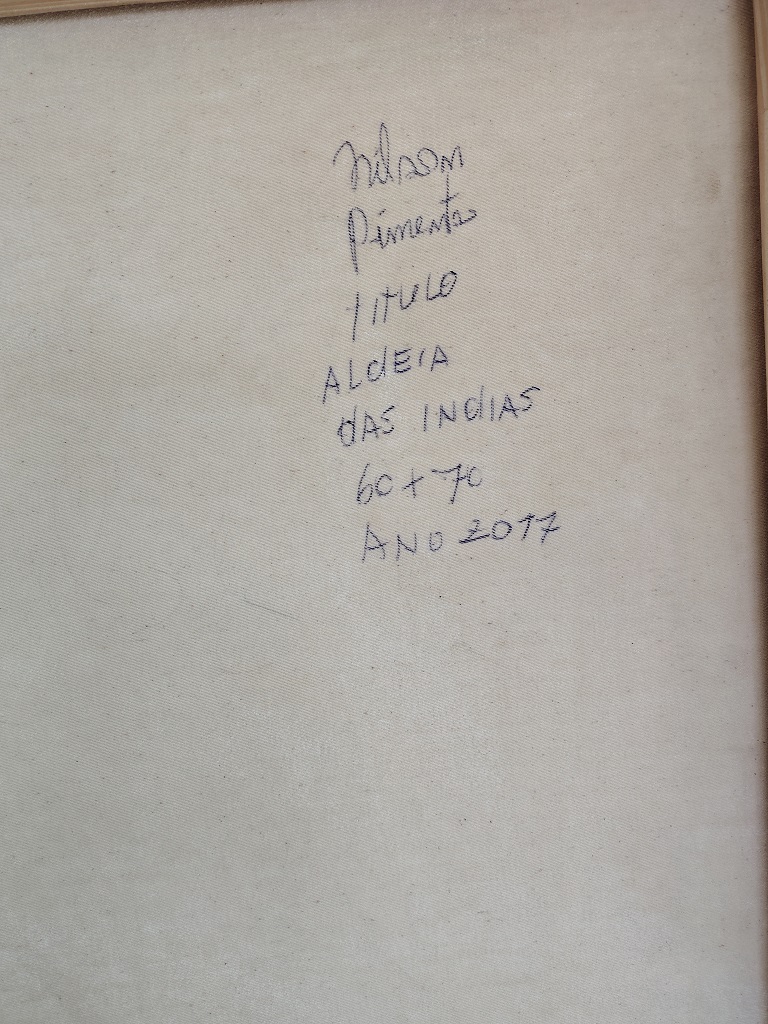 Nilson
Pimenta
TITULO
ALdEIA
dAS INdIAS
60+70
ANO 2017